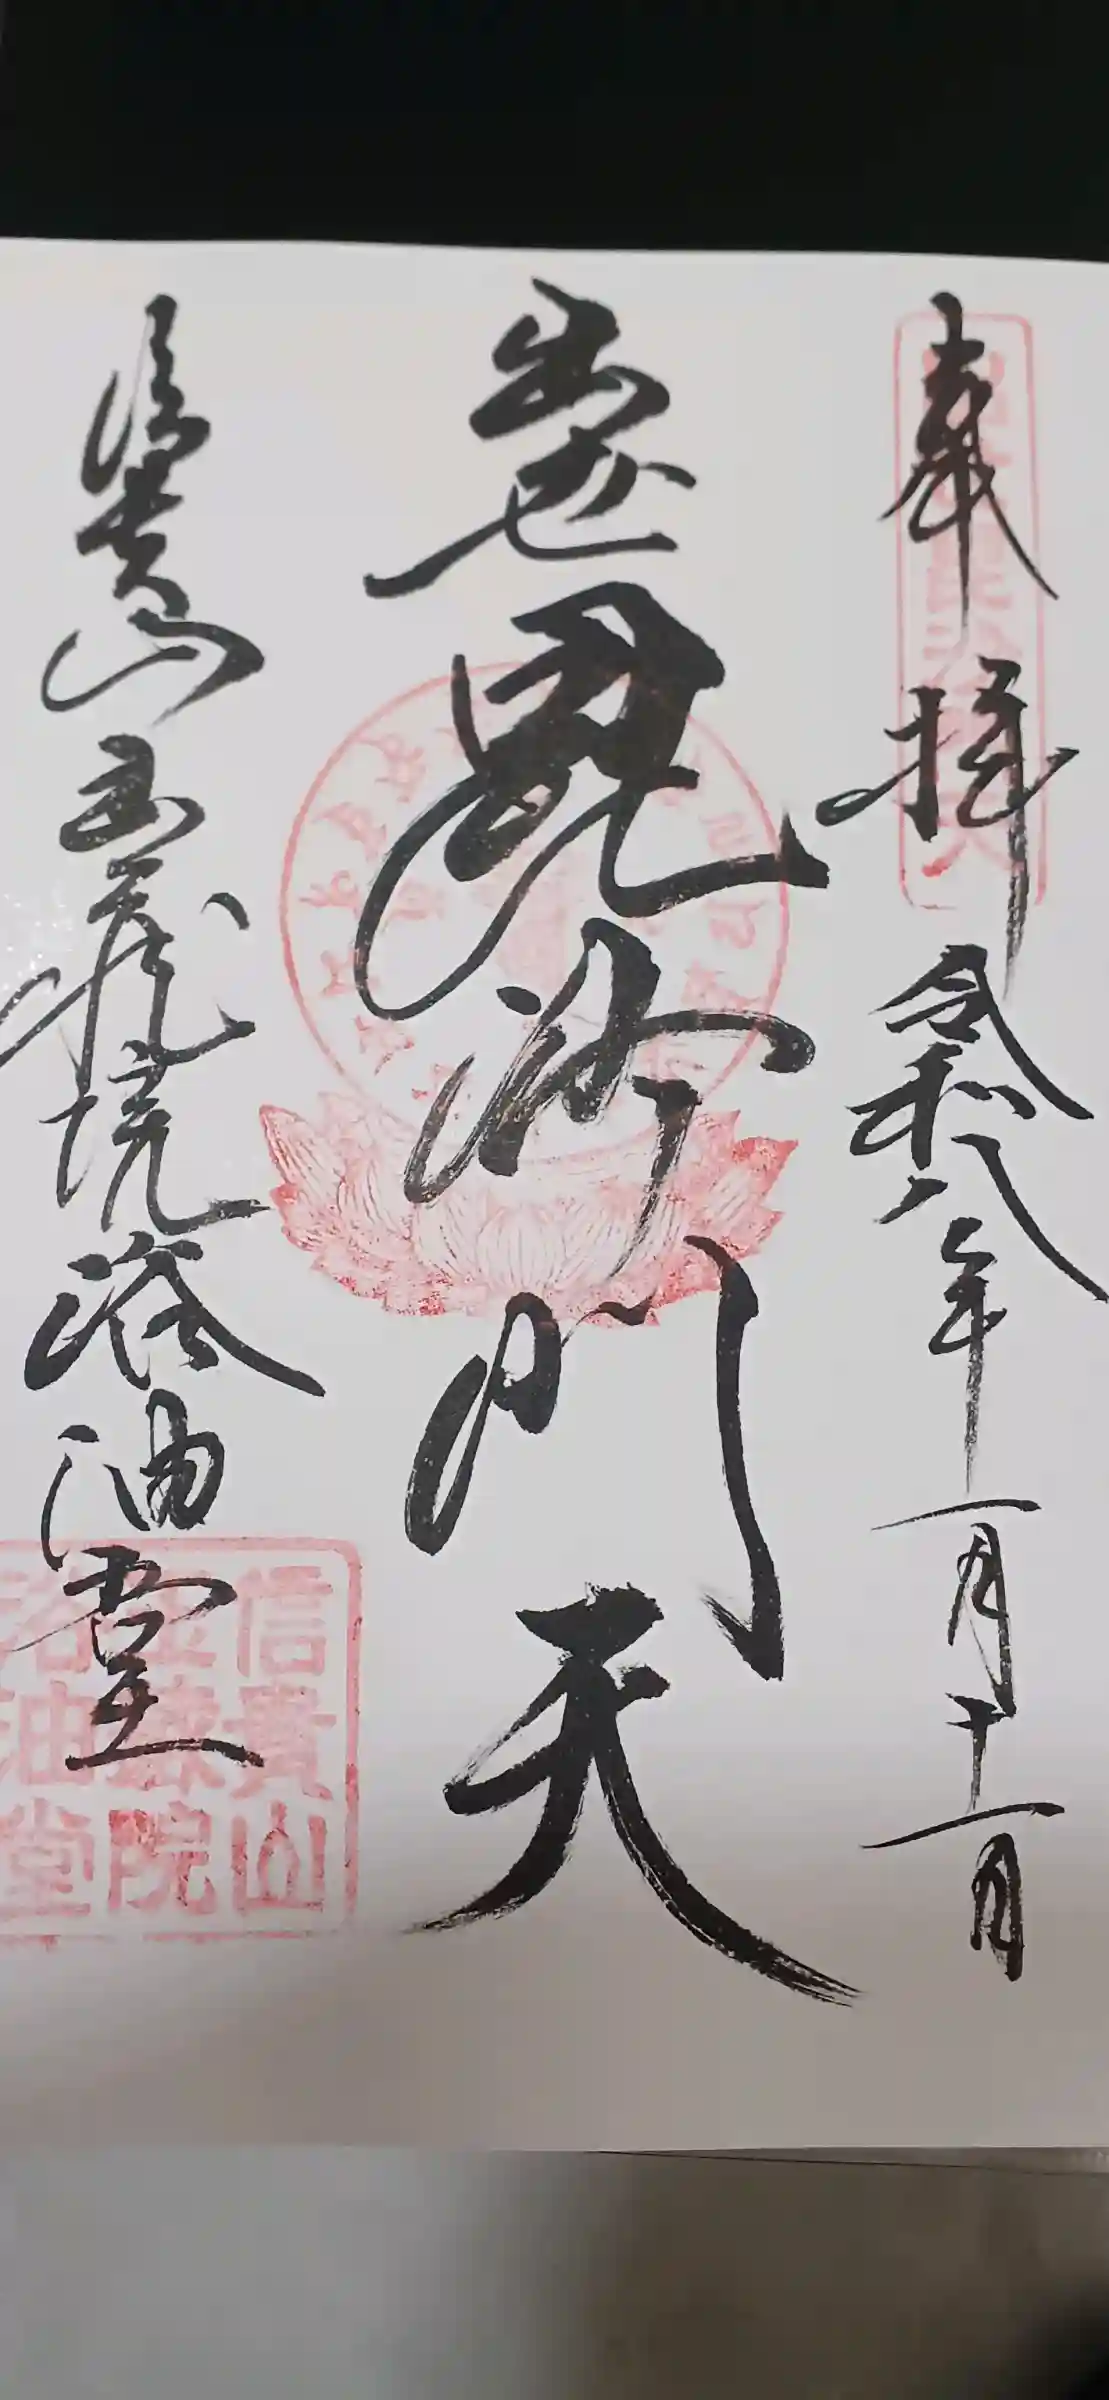 奉拝
令和八年一月十一日
出世毘沙門天
信貴山玉蔵院浴油堂
信貴山
玉蔵院
浴油堂